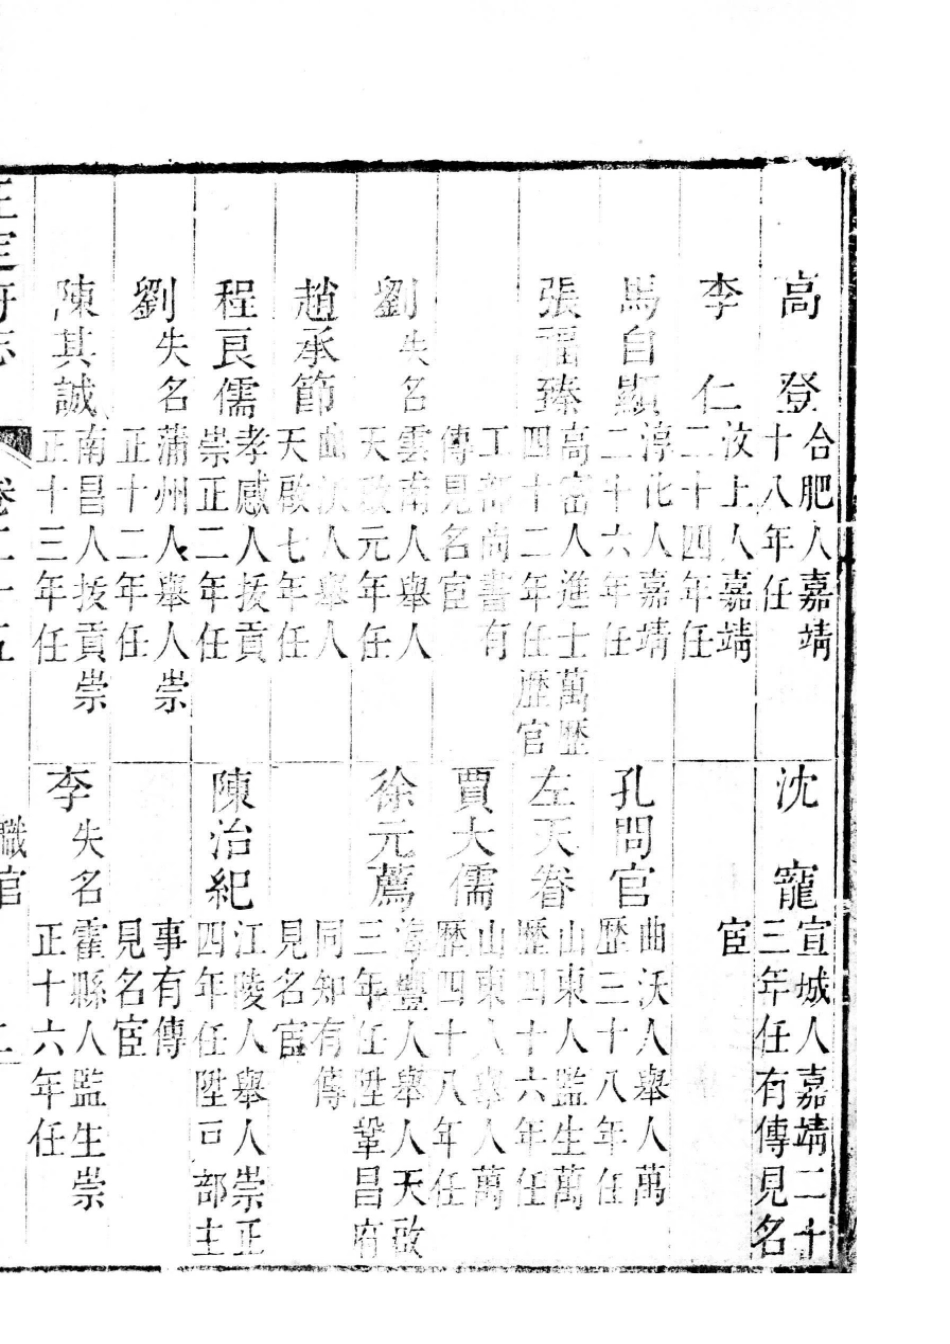 高　登 合肥人嘉靖
十八年任
沈　寵 宣城人嘉靖二十
三年任有傳見名
宦
李　仁 汶上人嘉靖
二十四年任
馬自顯 淳化人嘉靖
二十六年任
孔問官 曲沃人舉人萬
歷三十八年任
張福臻 高密人進士萬歷
四十二年任歷官
工部尚書有
傳見名宦
左天眷 山東人監生萬
歷四十六年任
賈大儒 山東人舉人萬
歷四十八年任
劉失名 雲南人舉人
天啟元年任
徐元薦 海豐人舉人天啟
三年任陞鞏昌府
同知有傳
見名宦
趙承節 曲沃人舉人
天啟七年任
程良儒 孝感人拔貢
崇正二年任
陳治紀 江陵人舉人崇正
四年任陞戶部主
事有傳
見名宦
劉失名 蒲州人舉人崇
正十二年任
陳其誠 南昌人拔貢崇
正十三年任
李失名 霍縣人監生崇
正十六年任
正定府志
卷二十五
職官